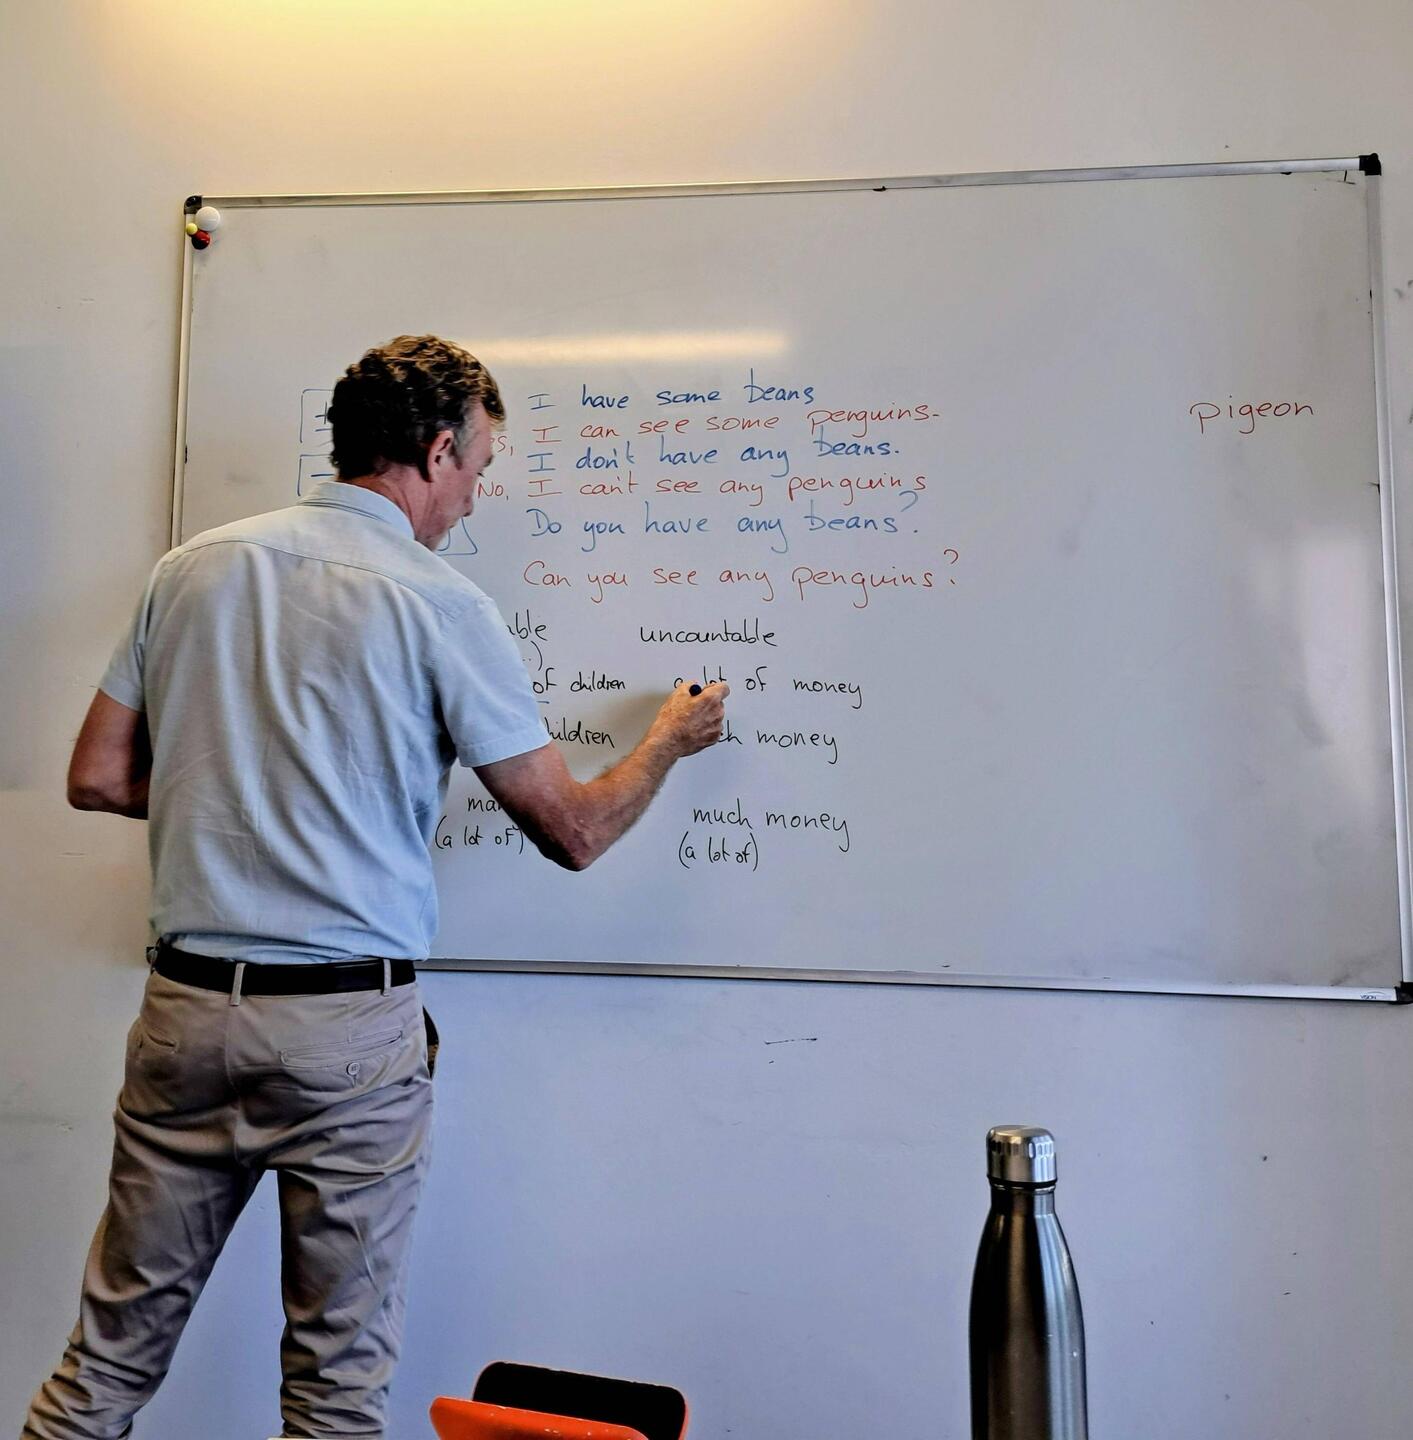 I have some beans
I can see some penguins.
I don't have any beans.
No, I can't see any penguins
Do you have any beans?
Can you see any penguins?
pigeon
uncountable
of children a lot of money
money
much money
(a lot of) (a lot of)